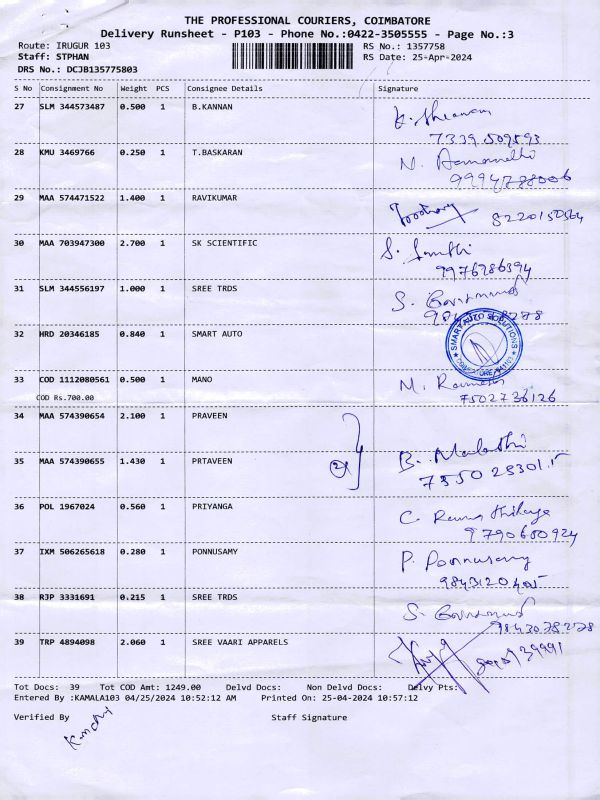 THE PROFESSIONAL COURIERS, COIMBATORE
Delivery Runsheet - P103 - Phone No.:0422-3505555 - Page No.:3
Route: IRUGUR 103 RS No.: 1357758
Staff: STPHAN RS Date: 25-Apr-2024
DRS No.: DCJB135775803
S No Consignment No Weight PCS Consignee Details Signature
27 SLM 344573487 0.500 1 B.KANNAN
7339509593
28 KMU 3469766 0.250 1 T.BASKARAN
N.
9994788006
29 MAA 574471522 1.400 1 RAVIKUMAR
8220150564
30 MAA 703947300 2.700 1 SK SCIENTIFIC
S. Santhi
9976786394
31 SLM 344556197 1.000 1 SREE TRDS
S.
32 HRD 20346185 0.840 1 SMART AUTO
SMART AUTO SOLUTIONS
33 COD 1112080561 0.500 1 MANO
COD Rs.700.00
M. Ramesh
7502736126
34 MAA 574390654 2.100 1 PRAVEEN
35 MAA 574390655 1.430 1 PRTAVEEN
B. Malathi
36 POL 1967024 0.560 1 PRIYANGA
C.
9790680924
37 IXM 506265618 0.280 1 PONNUSAMY
P. Ponnusamy
9843120405
38 RJP 3331691 0.215 1 SREE TRDS
S.
9843078278
39 TRP 4894098 2.060 1 SREE VAARI APPARELS
Tot Docs: 39 Tot COD Amt: 1249.00 Delvd Docs: Non Delvd Docs: Delvy Pts:
Entered By :KAMALA103 04/25/2024 10:52:12 AM Printed On: 25-04-2024 10:57:12
Verified By Staff Signature